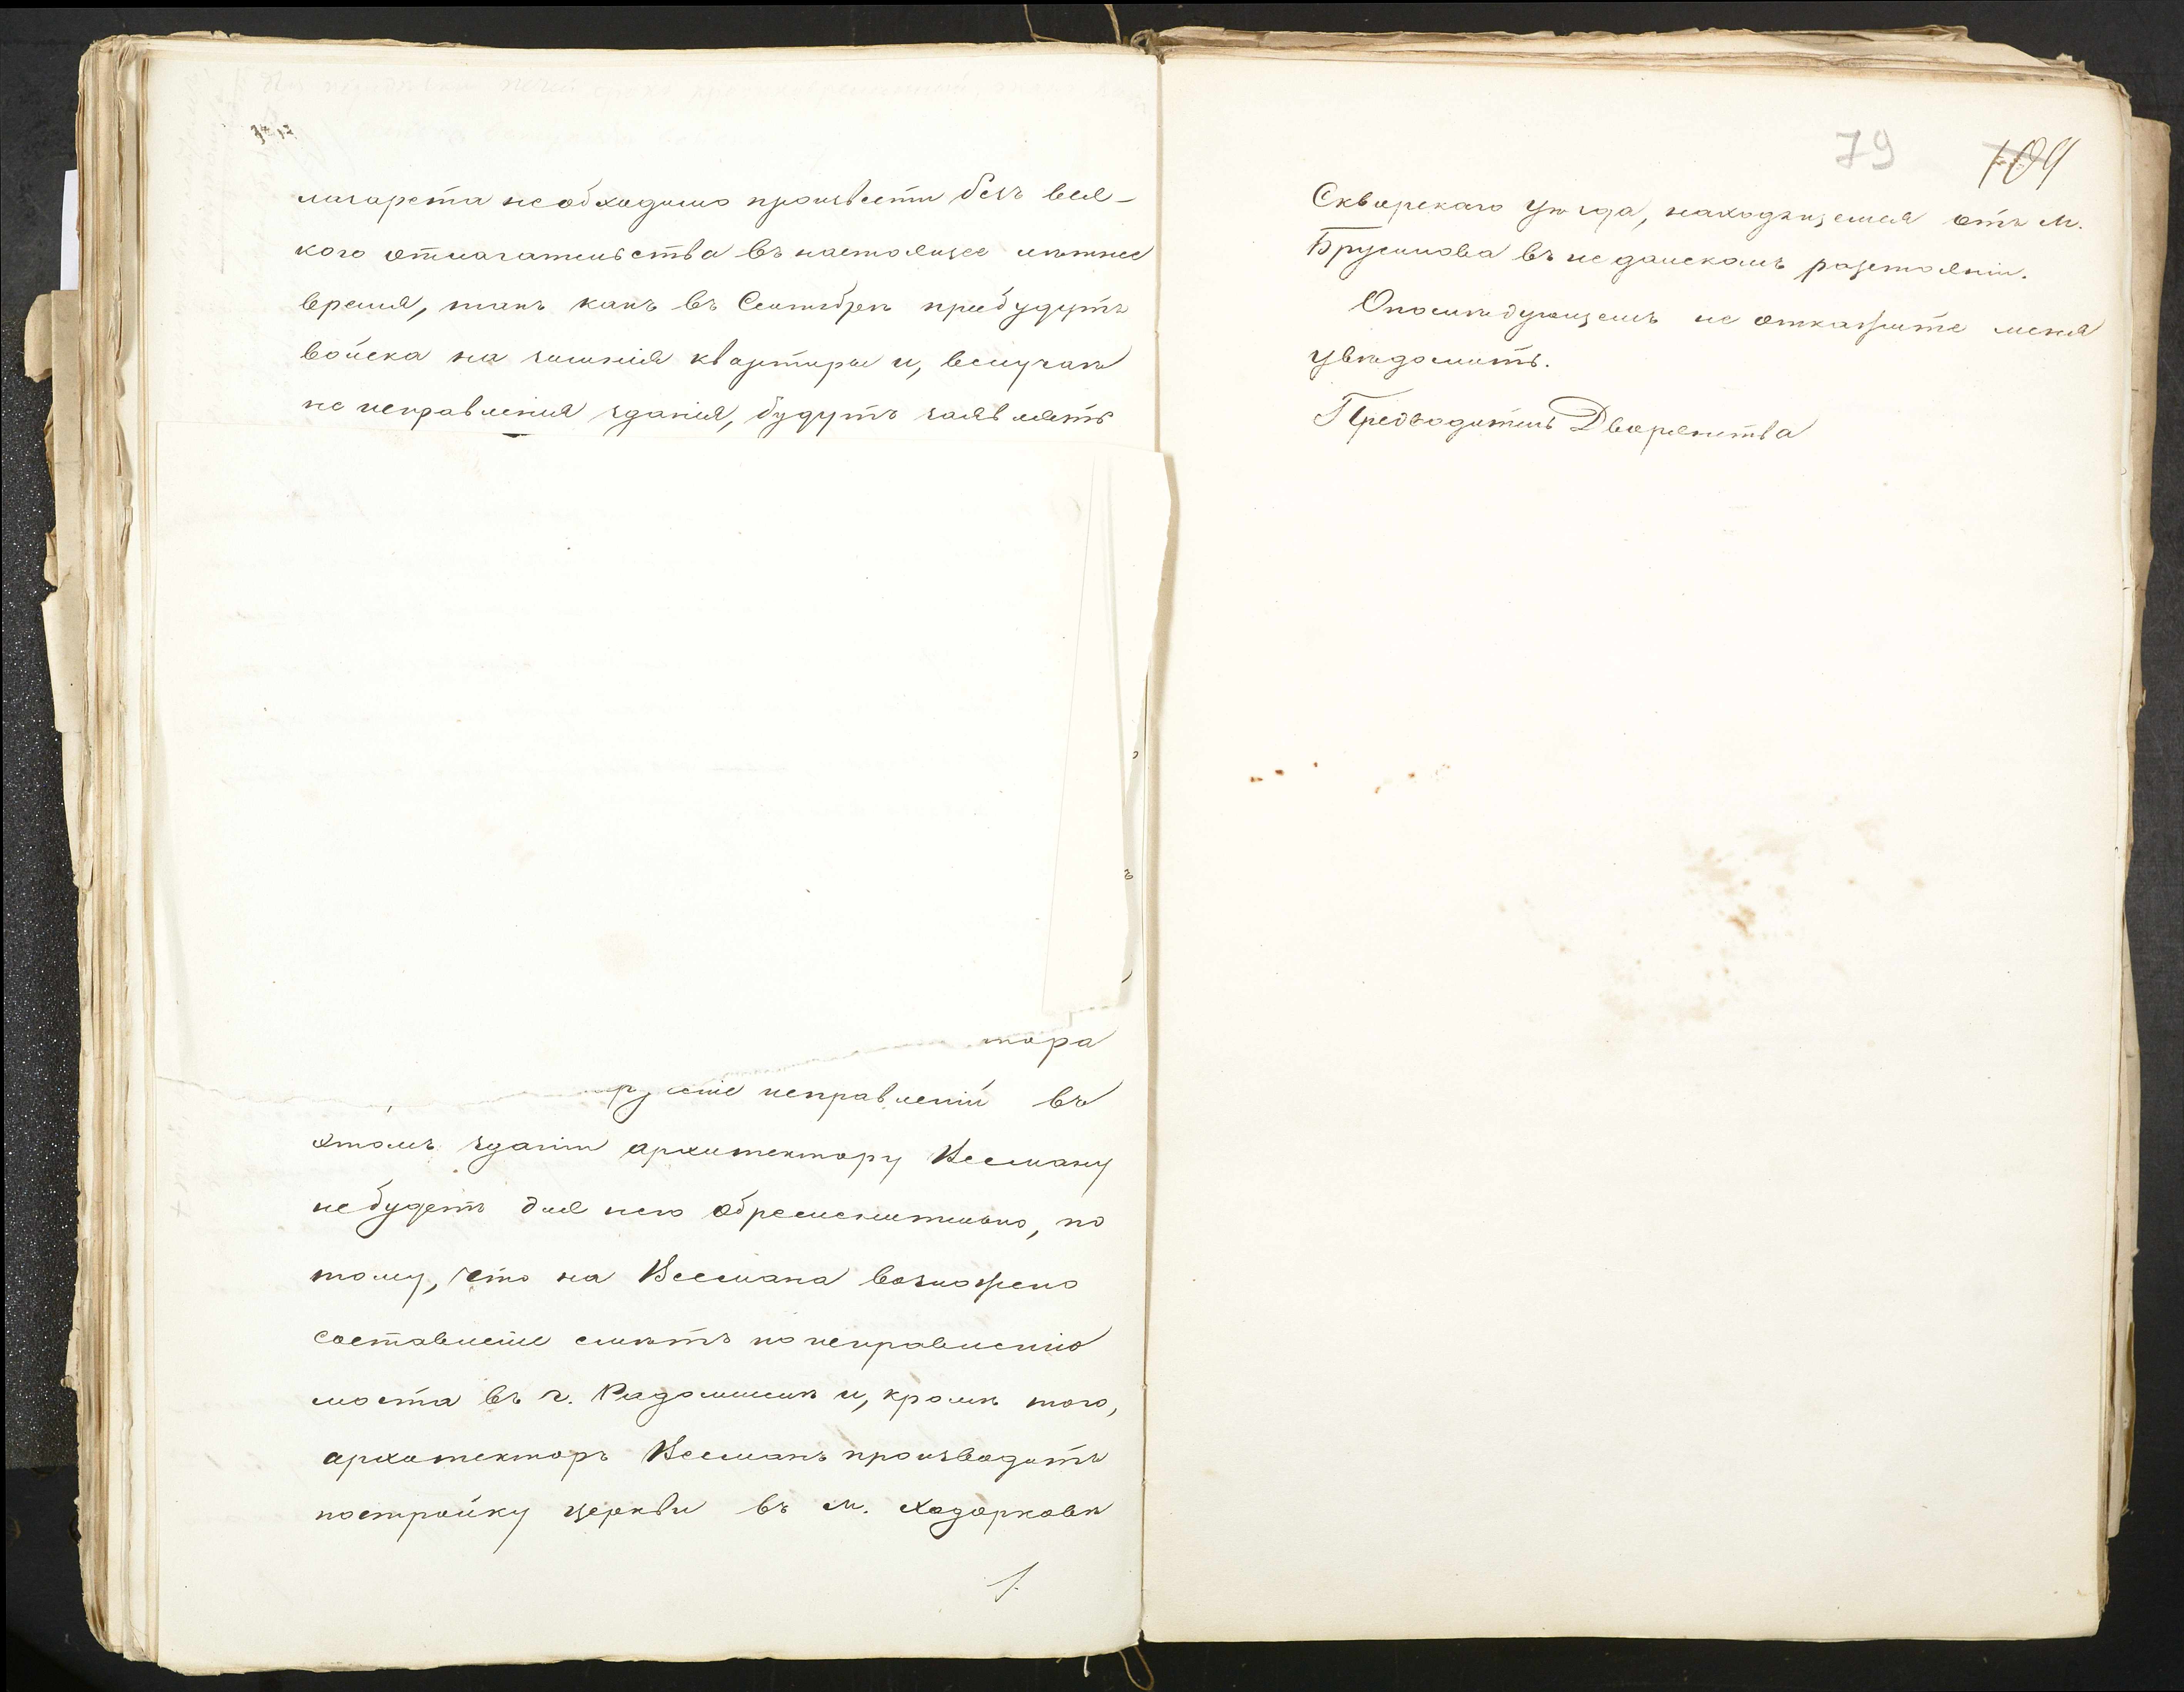 лазарета необходимо произвести безъ вся-
кого отлагательства въ настоящее лѣтнее
время, такъ какъ въ Сентябрѣ прибудутъ
войска на зимнія квартиры и, вслучаѣ
не исправленія зданія, будутъ заявлять
тора
исправленій въ
этомъ зданіи архитектору Весману
не будетъ для него обременительно, по
тому, что на Весмана возложено
составленіе смѣтъ по исправленію
моста въ г. Радомыслѣ и, кромѣ того,
архитекторъ Весманъ производитъ
постройку церкви въ м. Ходорковѣ
79 109
Сквирскаго уѣзда, находящемся отъ м.
Брусилова въ недалекомъ разстояніи.
Опослѣдующемъ не откажите меня
увѣдомить.
Предводитель Дворянства